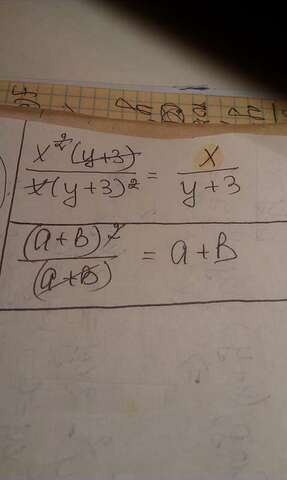 x²(y+3) / x(y+3)² = x / y+3
(a+B)² / (a+B) = a+B